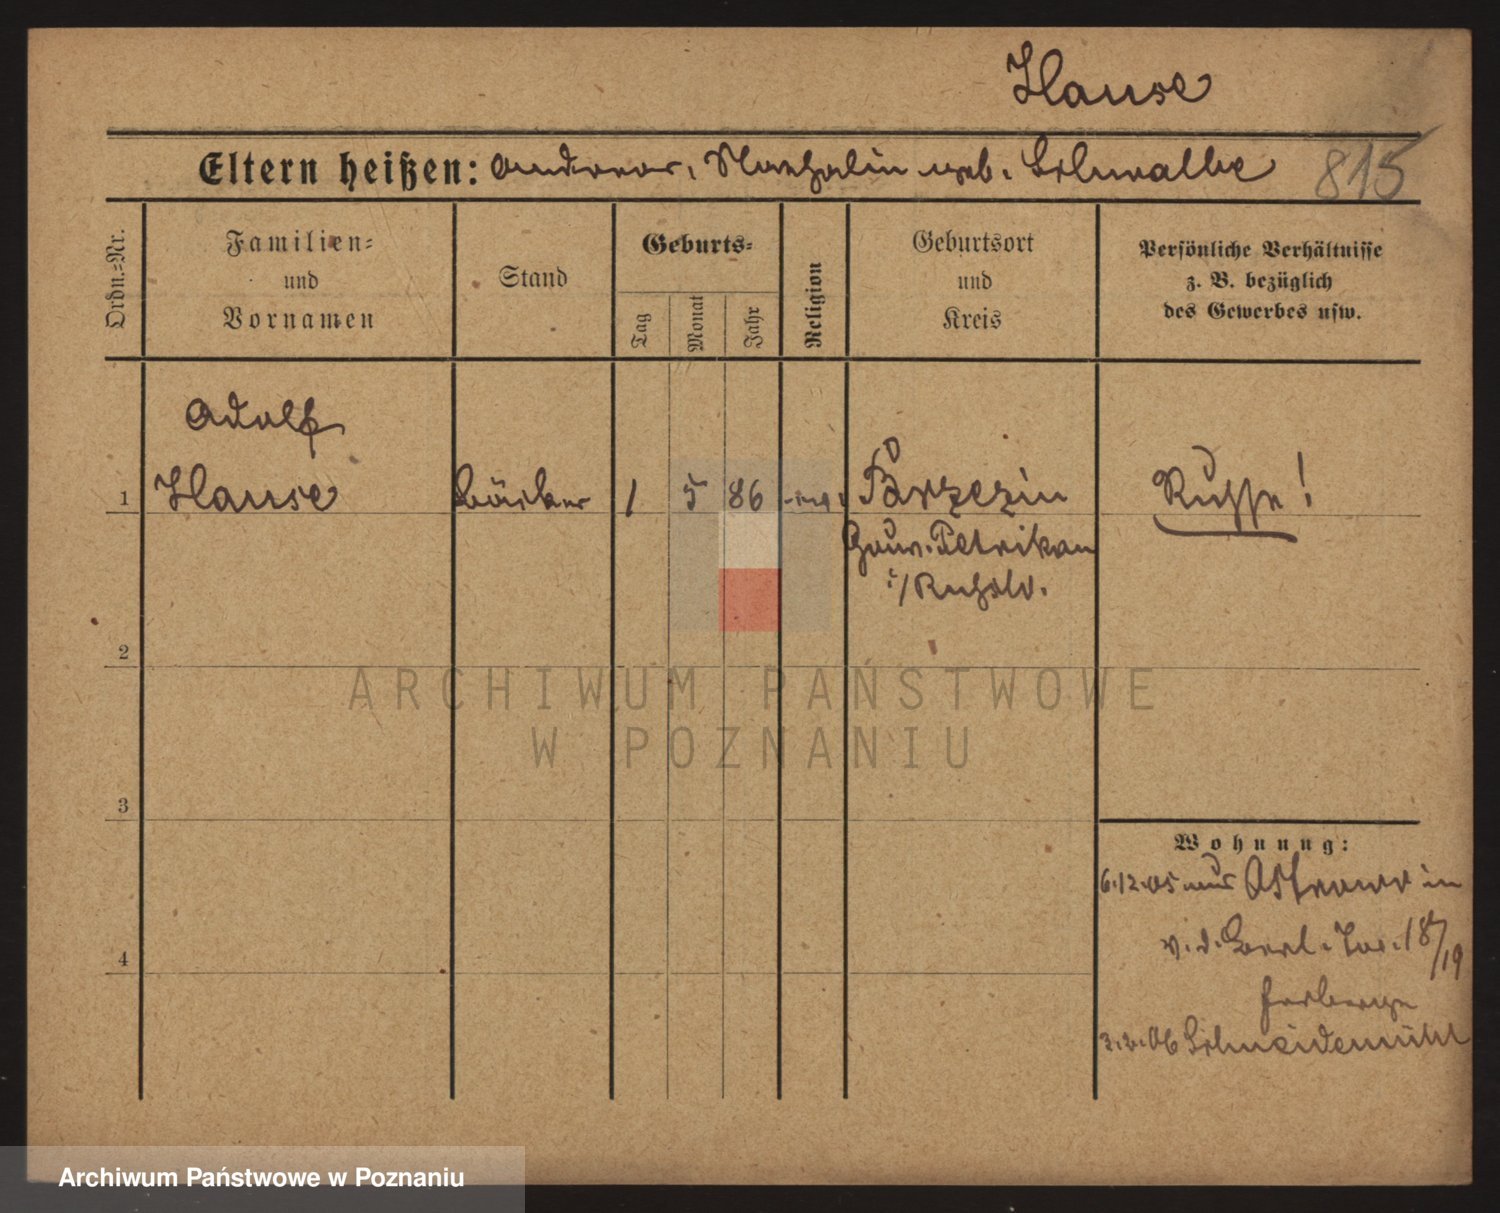 Hause
Eltern heißen: Andreas, Mathalin geb. Schwalbe 815
Ordn.=Nr.
Familien=
und
Vornamen
Stand
Geburts=
Tag
Monat
Jahr
Religion
Geburtsort
und
Kreis
Persönliche Verhältnisse
z. B. bezüglich
des Gewerbes usw.
Adolf
1 Hause Bäcker 1 5 86 Brzezin Russe!
Gouv. Petrikau
i/Rußld.
2
3
4
Wohnung:
6.12.05 aus Ostrowo in
v. d. Berl. Tor. 18/19
Herberge
3.2.06 Schneidemühl
ARCHIWUM PAŃSTWOWE
W POZNANIU
Archiwum Państwowe w Poznaniu